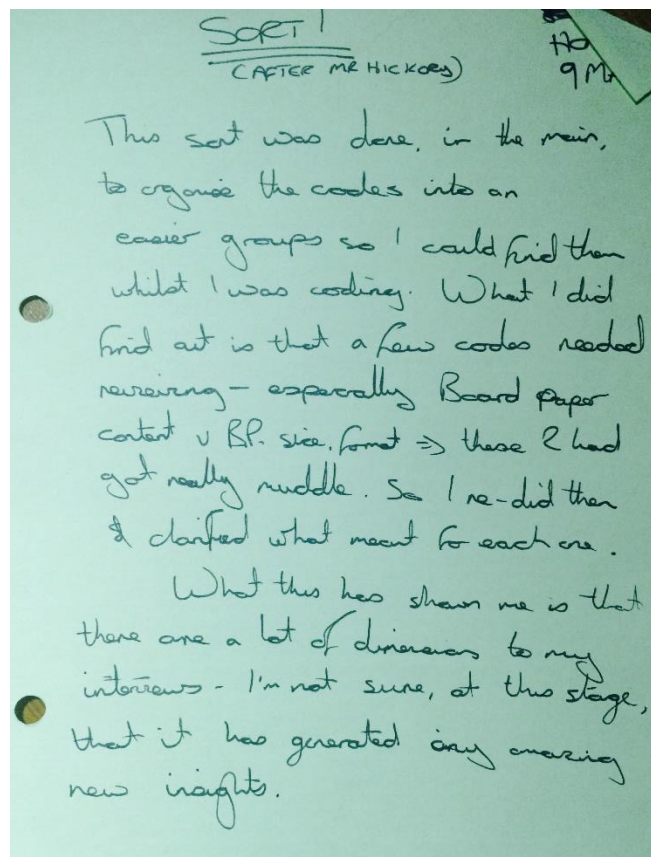 SORT 1
(AFTER MR HICKORY)
Ho
9 Ma
This sort was done, in the main,
to organise the codes into an
easier groups so I could find them
whilst I was coding. What I did
find out is that a few codes needed
reviewing - especially Board paper
content v BP. size, format => these 2 had
got really muddle. So I re-did then
& clarified what meant for each one.
What this has shown me is that
there are a lot of dimensions to my
interviews - I'm not sure, at this stage,
that it has generated any amazing
new insights.